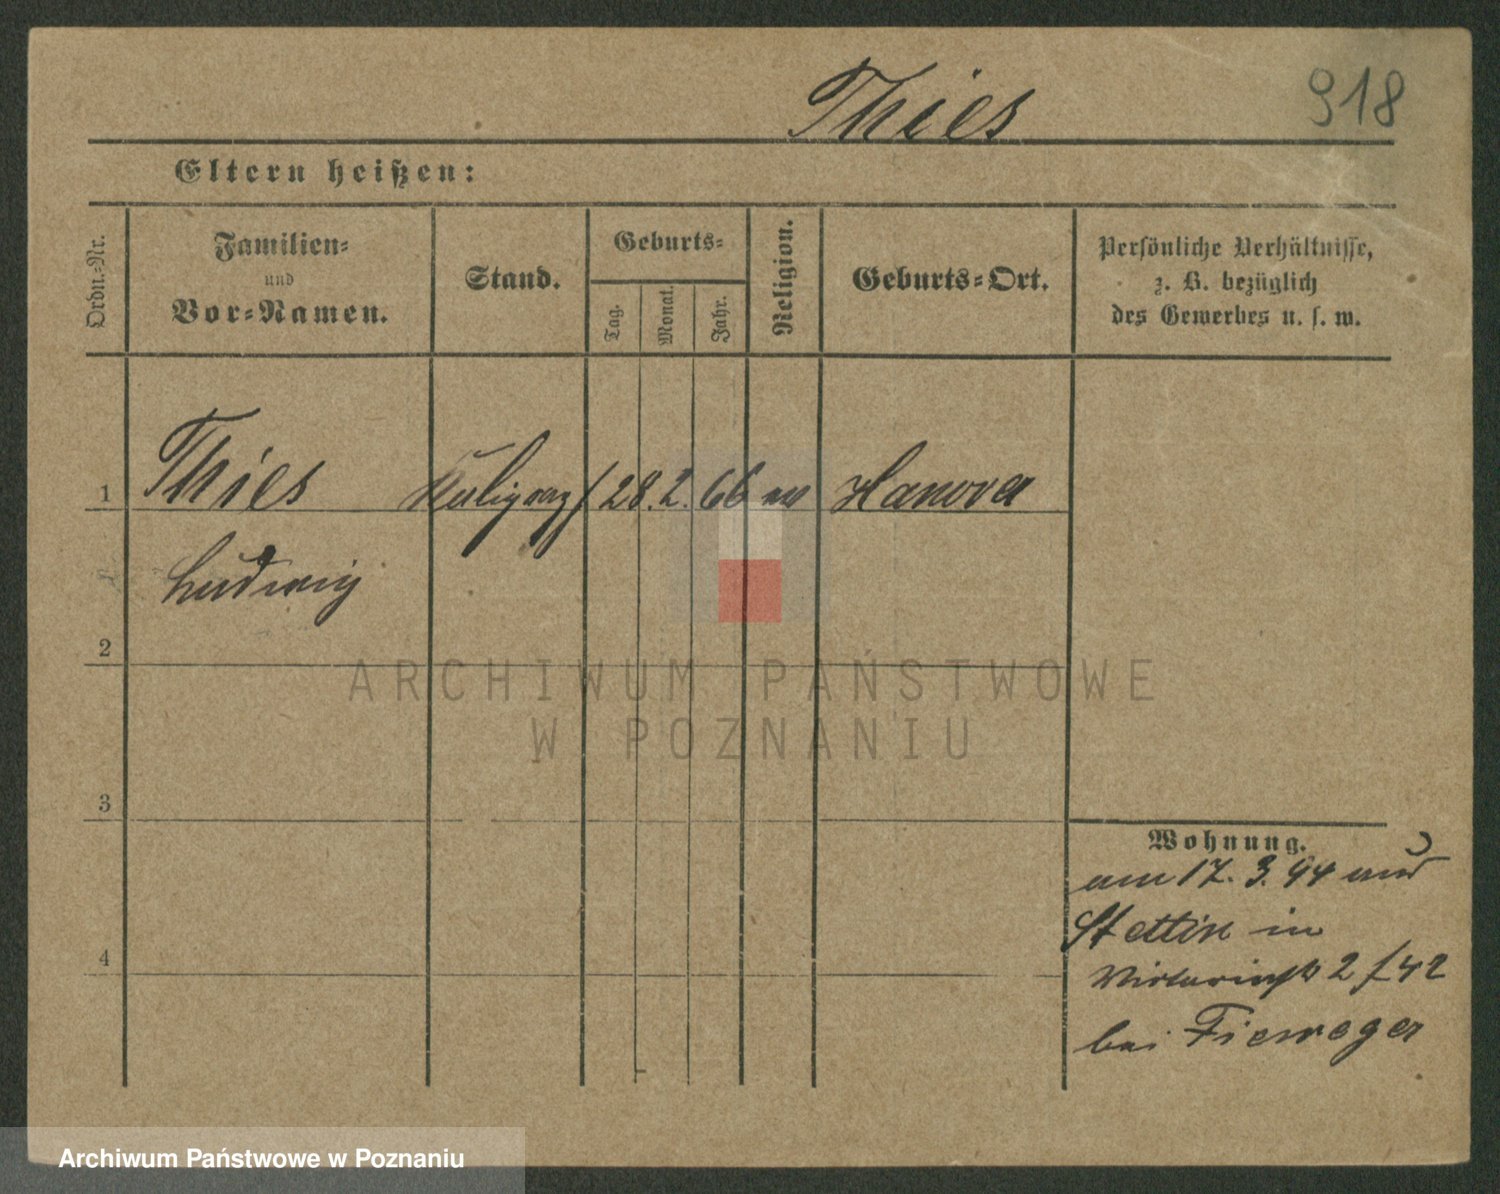 Thies 918
Eltern heißen:
Ordn.-Nr.
Familien-
und
Vor-Namen.
Stand.
Geburts-
Tag.
Monat.
Jahr.
Religion.
Geburts-Ort.
Persönliche Verhältnisse,
z. B. bezüglich
des Gewerbes u. s. w.
1 Thies 28. 2. 66 Hanover
Ludwig
2
3
4
Wohnung.
am 17. 3. 94 aus
Stettin in
2 / 42
bei Fieweger
ARCHIWUM PAŃSTWOWE
W POZNANIU
Archiwum Państwowe w Poznaniu